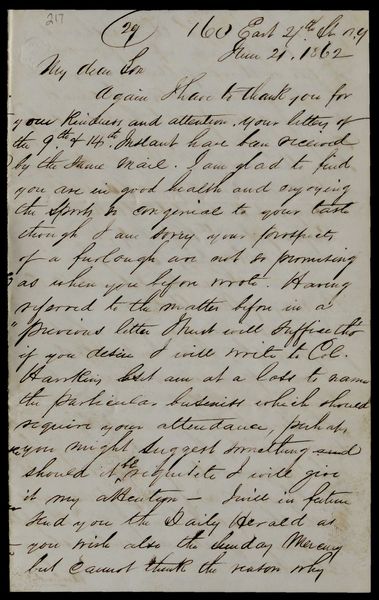 217
(29) 160 East 21th St. N.Y
June 21. 1862
My dear Son
Again I have to thank you for
your kindness and attention. Your letters of
the 9th & 14th Instant have been received
by the same mail. I am glad to find
you are in good health and enjoying
the sports so congenial to your taste
though I am sorry your prospects
of a furlough are not so promising
as when you before wrote. Having
referred to the matter before in a
previous letter I trust will suffice tho
if you desire I will write to Col.
Hawkins but am at a loss to name
the particular business which should
require your attendance, perhaps
you might suggest something and
should it be requisite I will give
it my attention — I will in future
send you the Daily Herald as
you wish also the Sunday Mercury
but cannot think the reason why